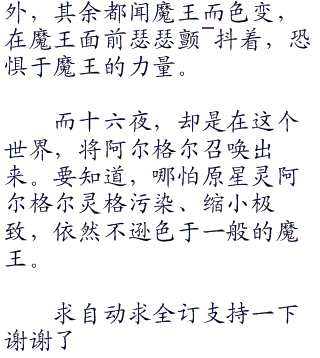 外，其余都闻魔王而色变，
在魔王面前瑟瑟颤¯抖着，恐
惧于魔王的力量。
而十六夜，却是在这个
世界，将阿尔格尔召唤出
来。要知道，哪怕原星灵阿
尔格尔灵格污染、缩小极
致，依然不逊色于一般的魔
王。
求自动求全订支持一下
谢谢了